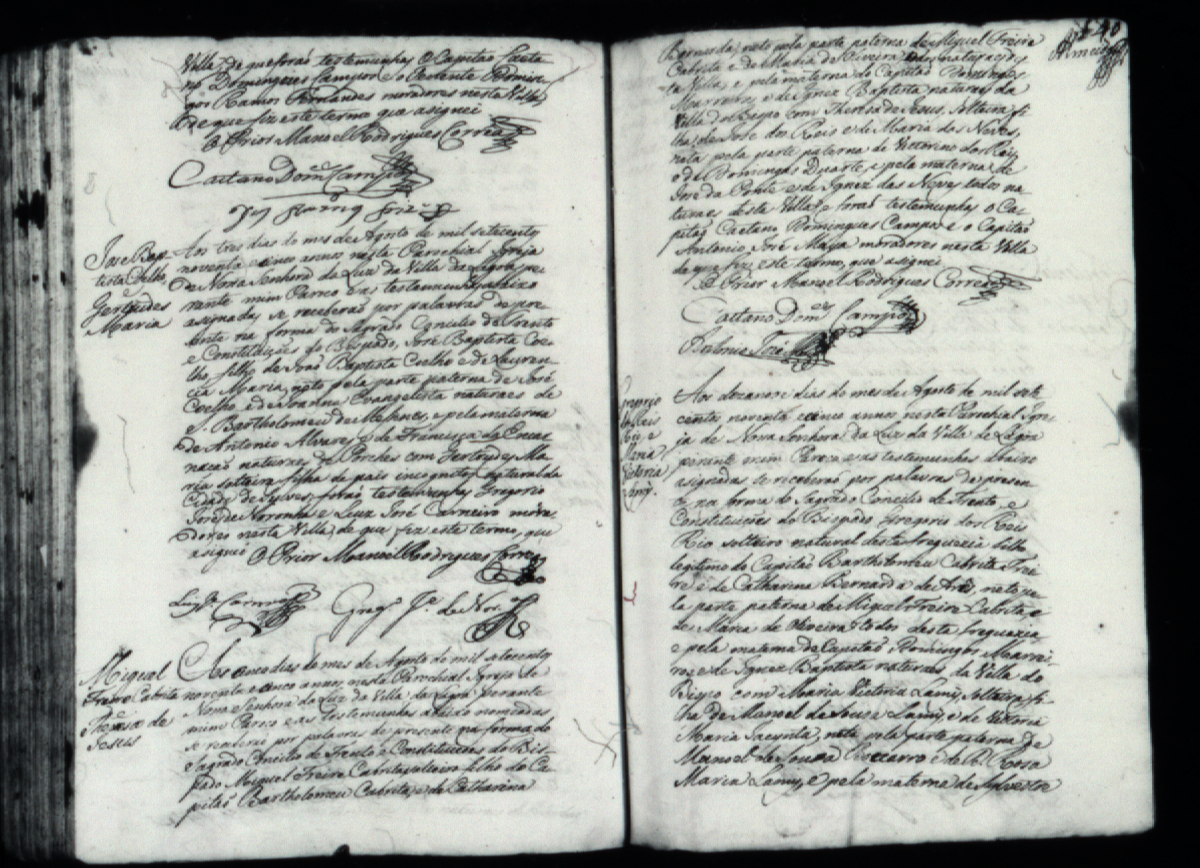 Villa, de que foraõ testemunhas o Capitaõ Caeta
no Domingues Campos e o Tenente Domin
gos Ramos Fernandes moradores nesta Villa
de que fiz este termo que asignei
O Prior Manoel Rodrigues Correa
Caetano Dom.es Campos
Jose Bap
tista Coelho,
Gertrudes
Maria
Aos tres dias do mes de Agosto de mil setecentos
noventa e cinco annos nesta Parochial Igreja
de Nossa Senhora da Luz da Villa da Lagoa pe
rante mim Paroco e as testemunhas abaixo
asignadas se receberaõ por palavras de pre
zente na forma do Sagrado Concilio de Trento
e Constituições do Bispado, Jose Baptista Coe
lho, filho de Joaõ Baptista Coelho e de Lauren
cia Maria, neto pela parte paterna de José
Coelho, e de Joanna Evangelista naturaes de
S. Bartholomeu de Messines, e pela materna
de Antonio Alvares, e de Francisca da Encar
naçaõ naturaes de Porches com Gertrudes Ma
ria solteira filha de pais incognitos, natural da
Cidade de Sylves, foraõ testemunhas Gregorio
José de Noronha e Luiz José Carneiro mora
dores nesta Villa, de que fiz este termo, que
asignei O Prior Manoel Rodrigues Correa
Greg.o J.e de Nor.a
Miguel
Freire Cabrita
Theresa de
Jesus
Aos cinco dias do mes de Agosto de mil setecentos
noventa e cinco annos, nesta Parochial Igreja de
Nossa Senhora da Luz da Villa da Lagoa perante
mim Paroco e as testemunhas abaixo nomeadas
se receberaõ por palavras de presente na forma do
Sagrado Concilio de Trento e Constituições do Bis
pado Miguel Freire Cabrita solteiro filho do Ca
pitaõ Bartholomeu Cabrita, e de Catharina
Bernarda, neto pela parte paterna de Miguel Freire
Cabrita e de Maria de Oliveira naturaes des
ta Villa, e pela materna do Capitaõ Domingos
Marreiros, e de Ignez Baptista naturaes da
Villa do Bispo com Theresa de Jesus, solteira fi
lha de Jose dos Reis e de Maria das Neves,
neta pela parte paterna de Victorino dos Reis
e de Domingas Duarte, e pela materna de
José da Ponte e de Ignez das Neves todos na
turaes desta Villa, e foraõ testemunhas o Ca
pitaõ Caetano Domingues Campos e o Capitaõ
Antonio José Maya moradores nesta Villa
de que fiz este termo, que asignei
O Prior Manoel Rodrigues Correa
Caetano Dom.es Campos
Antonio José
Gregorio
dos Reis
Rio, e
Maria
Victoria
Lamy.
Aos dezanove dias do mes de Agosto de mil sete
centos noventa e cinco annos nesta Parochial Igre
ja de Nossa Senhora da Luz da Villa de Lagoa
perante mim Paroco e as testemunhas abaixo
asignadas se receberaõ por palavras de presen
te, na forma do Sagrado Concilio de Trento e
Constituições do Bispado Gregorio dos Reis
Rio solteiro natural desta freguezia filho
legitimo do Capitaõ Bartholomeu Cabrita Frei
re e de Catharina Bernarda de Artes, neto pe
la parte paterna de Miguel Freire Cabrita, e
de Maria de Oliveira todos desta freguezia
e pela materna do Capitaõ Domingos Marrei
ros e de Ignez Baptista naturaes da Villa do
Bispo com Maria Victoria Lamy solteira fi
lha de Manoel de Sousa Lamy, e de Victoria
Maria Jacynta, neta pela parte paterna de
Manoel de Sousa e de D. Rosa
Maria Lamy, e pela materna de Sylvestre